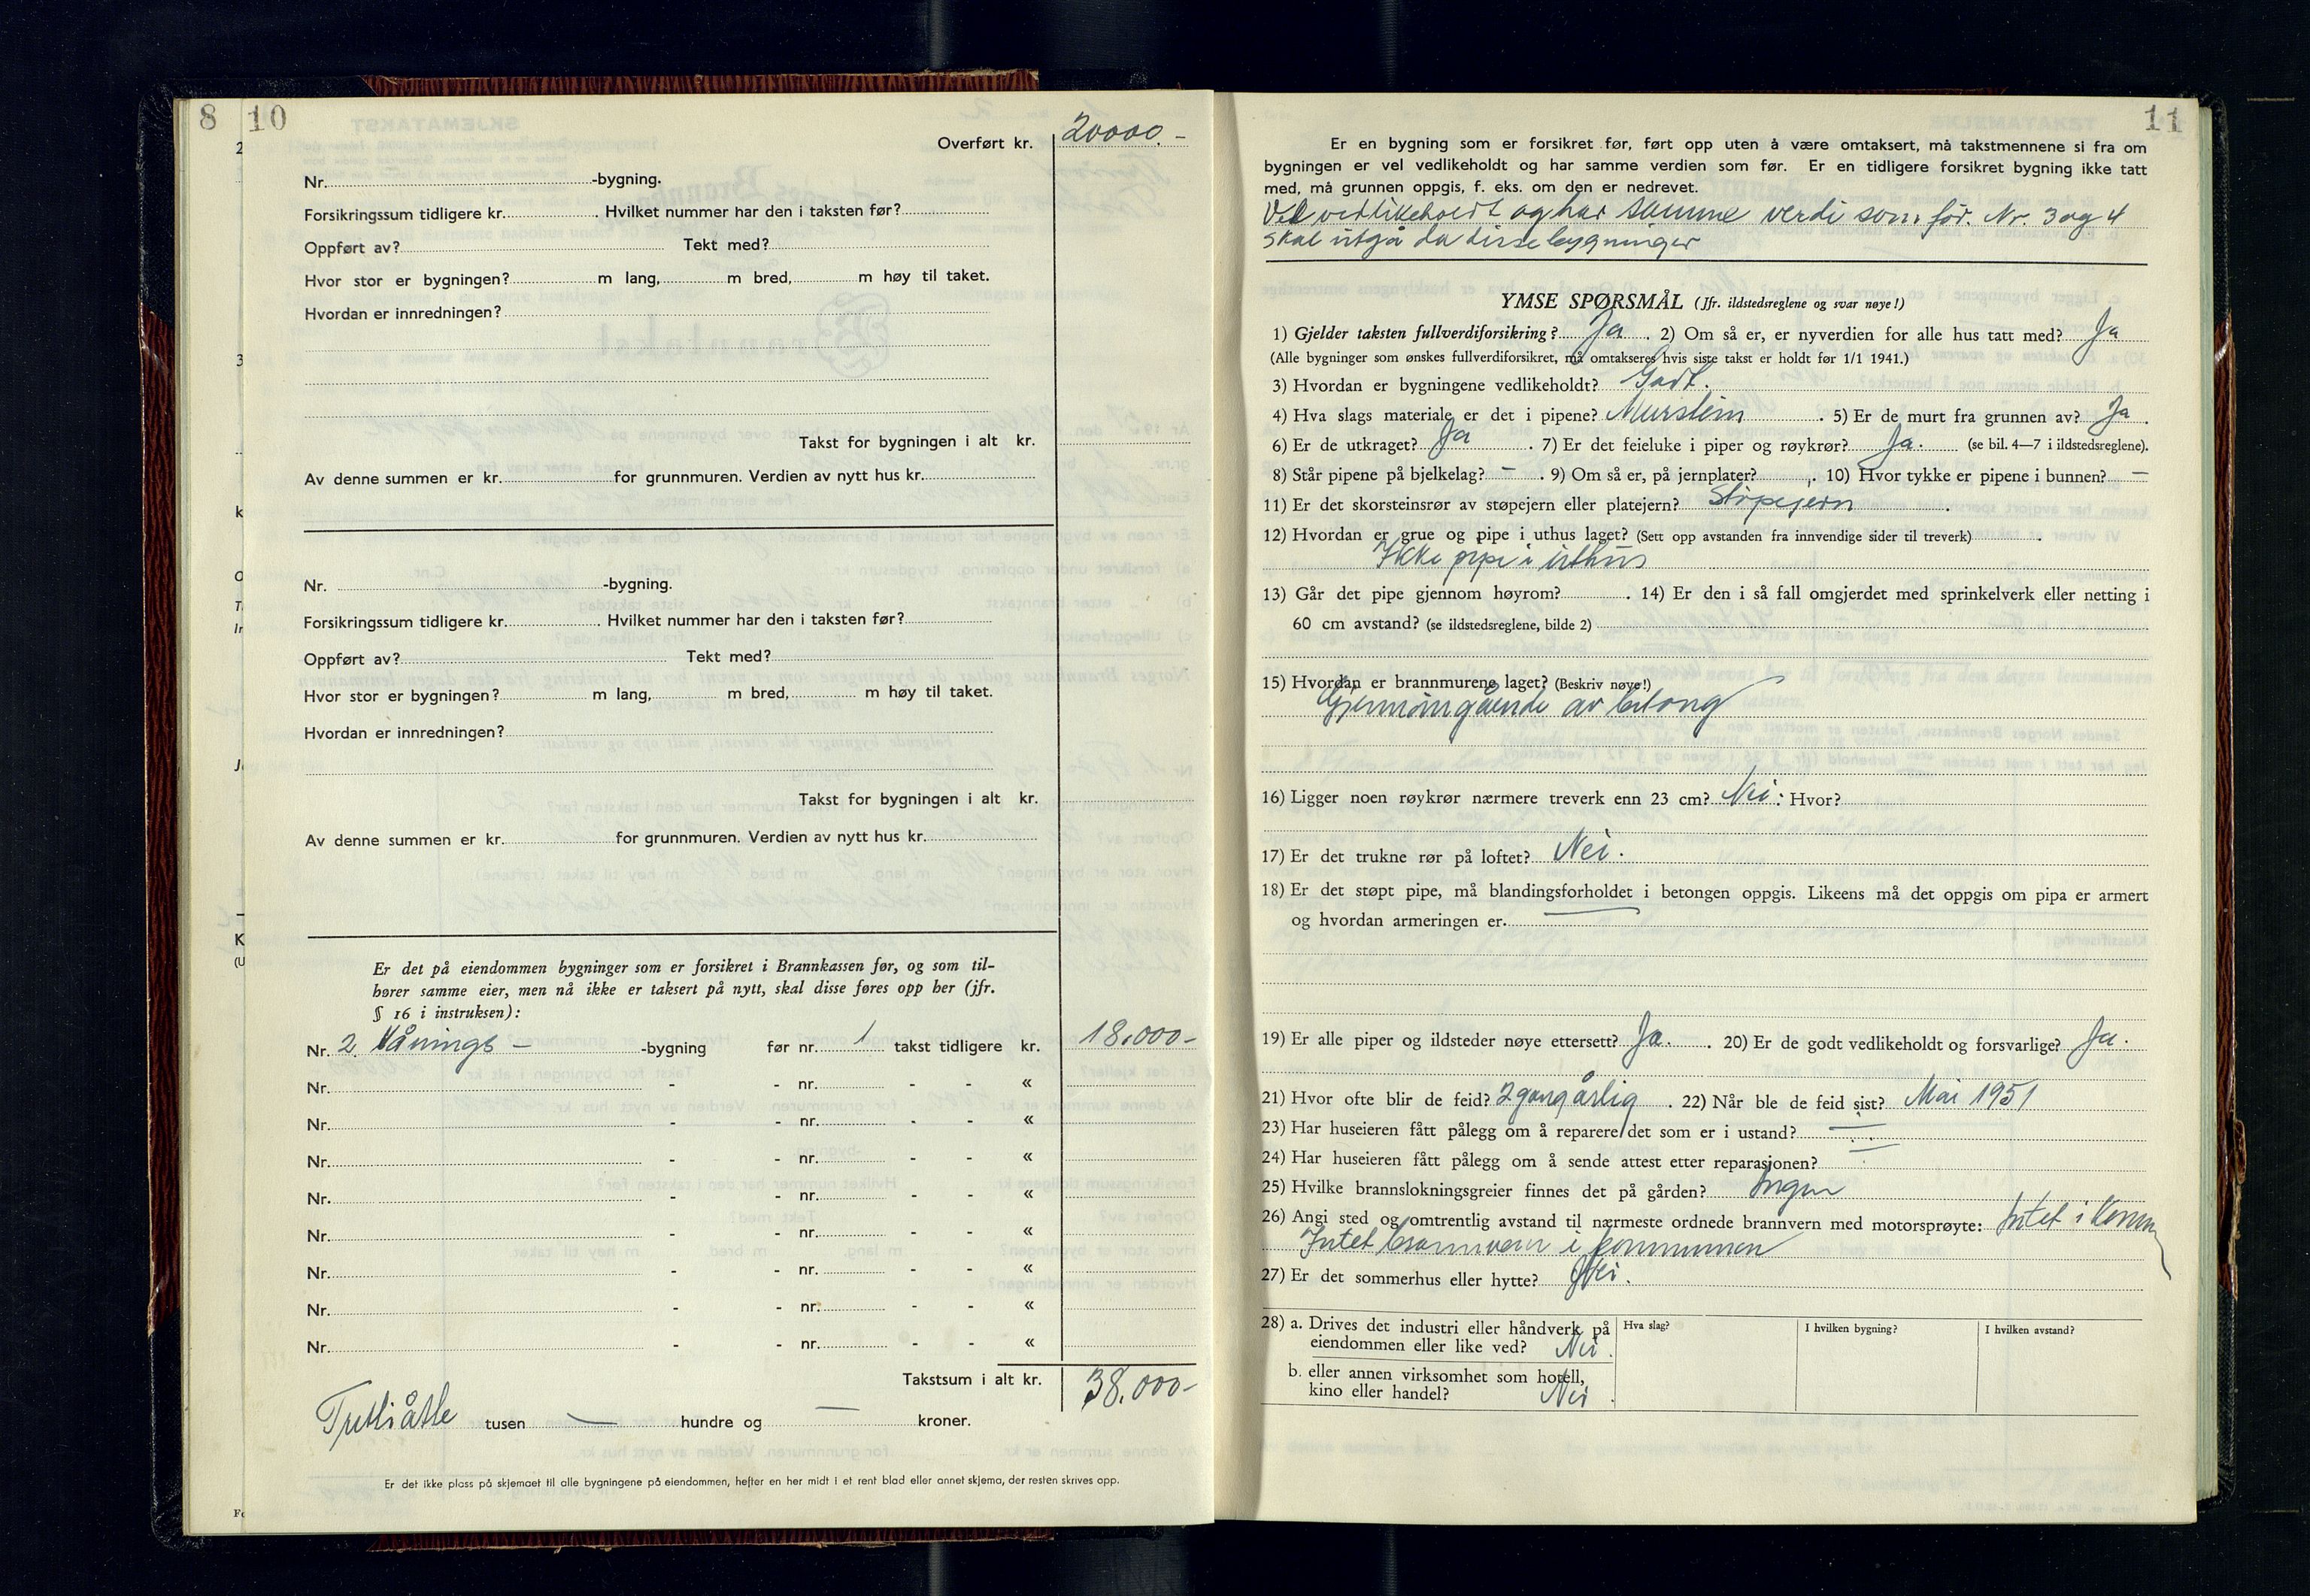 8 10
Overført kr. 20000.-
Nr. -bygning.
Forsikringssum tidligere kr. . Hvilket nummer har den i taksten før?
Oppført av? Tekt med?
Hvor stor er bygningen? m lang, m bred, m høy til taket.
Hvordan er innredningen?
Takst for bygningen i alt kr.
Av denne summen er kr. for grunnmuren. Verdien av nytt hus kr.
Nr. -bygning.
Forsikringssum tidligere kr. . Hvilket nummer har den i taksten før?
Oppført av? Tekt med?
Hvor stor er bygningen? m lang, m bred, m høy til taket.
Hvordan er innredningen?
Takst for bygningen i alt kr.
Av denne summen er kr. for grunnmuren. Verdien av nytt hus kr.
Er det på eiendommen bygninger som er forsikret i Brannkassen før, og som til-
hører samme eier, men nå ikke er taksert på nytt, skal disse føres opp her (jfr.
§ 16 i instruksen):
Nr. 2. Vånings - -bygning før nr. 1 takst tidligere kr. 18.000-
Nr. - - nr. - - «
Nr. - - nr. - - «
Nr. - - nr. - - «
Nr. - - nr. - - «
Nr. - - nr. - - «
Nr. - - nr. - - «
Nr. - - nr. - - «
Nr. - - nr. - - «
Takstsum i alt kr. 38.000-
Trettiåtte tusen — hundre og — kroner.
Er det ikke plass på skjemaet til alle bygningene på eiendommen, hefter en her midt i et rent blad eller annet skjema, der resten skrives opp.
11
Er en bygning som er forsikret før, ført opp uten å være omtaksert, må takstmennene si fra om
bygningen er vel vedlikeholdt og har samme verdien som før. Er en tidligere forsikret bygning ikke tatt
med, må grunnen oppgis, f. eks. om den er nedrevet.
Vel vedlikeholdt og har samme verdi som før. Nr. 3 og 4
skal utgå da disse bygninger
YMSE SPØRSMÅL (Jfr. ildstedsreglene og svar nøye!)
1) Gjelder taksten fullverdiforsikring? Ja . 2) Om så er, er nyverdien for alle hus tatt med? Ja
(Alle bygninger som ønskes fullverdiforsikret, må omtakseres hvis siste takst er holdt før 1/1 1941.)
3) Hvordan er bygningene vedlikeholdt? Godt.
4) Hva slags materiale er det i pipene? Murstein . 5) Er de murt fra grunnen av? Ja .
6) Er de utkraget? Ja . 7) Er det feieluke i piper og røykrør? Ja. (se bil. 4—7 i ildstedsreglene).
8) Står pipene på bjelkelag? - . 9) Om så er, på jernplater? . 10) Hvor tykke er pipene i bunnen? —
11) Er det skorsteinsrør av støpejern eller platejern? Støpejern .
12) Hvordan er grue og pipe i uthus laget? (Sett opp avstanden fra innvendige sider til treverk) .
Ikke pipe i uthus
13) Går det pipe gjennom høyrom? . 14) Er den i så fall omgjerdet med sprinkelverk eller netting i
60 cm avstand? (se ildstedsreglene, bilde 2)
15) Hvordan er brannmurene laget? (Beskriv nøye!)
Gjennomgående av betong
16) Ligger noen røykrør nærmere treverk enn 23 cm? Nei. Hvor?
17) Er det trukne rør på loftet? Nei.
18) Er det støpt pipe, må blandingsforholdet i betongen oppgis. Likeens må det oppgis om pipa er armert
og hvordan armeringen er. —
19) Er alle piper og ildsteder nøye ettersett? Ja. . 20) Er de godt vedlikeholdt og forsvarlige? Ja.
21) Hvor ofte blir de feid? 2 gang årlig . 22) Når ble de feid sist? Mai 1951
23) Har huseieren fått pålegg om å reparere det som er i ustand? —
24) Har huseieren fått pålegg om å sende attest etter reparasjonen? —
25) Hvilke brannslokningsgreier finnes det på gården? Ingen
26) Angi sted og omtrentlig avstand til nærmeste ordnede brannvern med motorsprøyte: Intet i komm
Intet brannvern i kommunen
27) Er det sommerhus eller hytte? Nei.
28) a. Drives det industri eller håndverk på eiendommen eller like ved? Nei. Hva slag? I hvilken bygning? I hvilken avstand?
b. eller annen virksomhet som hotell, kino eller handel? Nei.